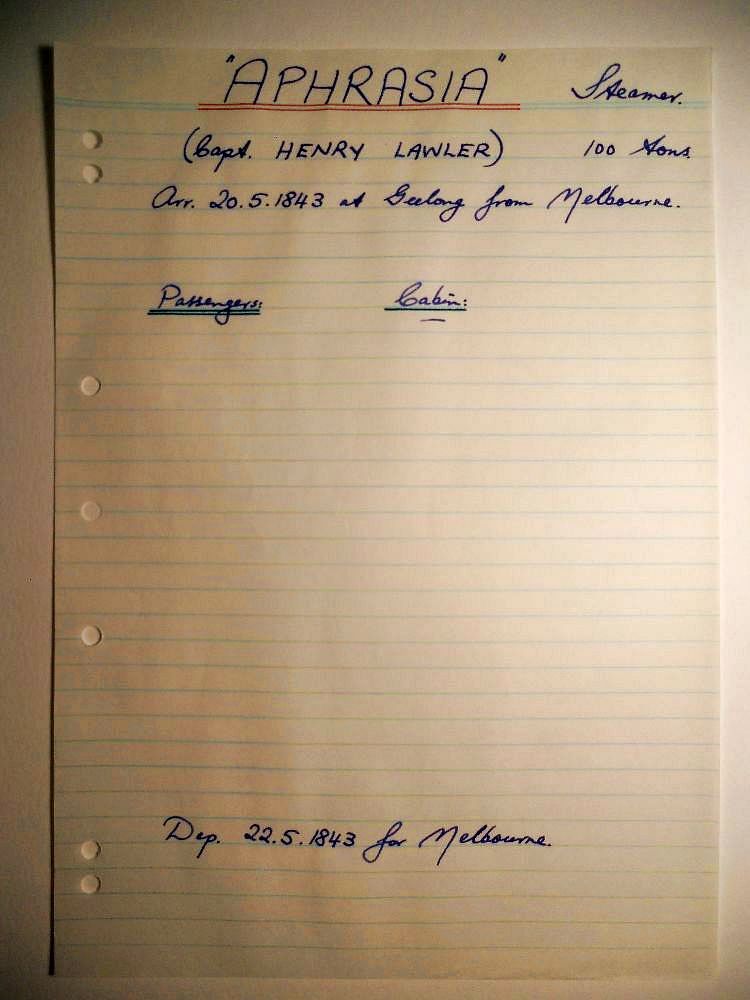 "APHRASIA" Steamer.
(Capt. HENRY LAWLER) 100 tons.
Arr. 20.5.1843 at Geelong from Melbourne.
Passengers: Cabin:
Dep. 22.5.1843 for Melbourne.